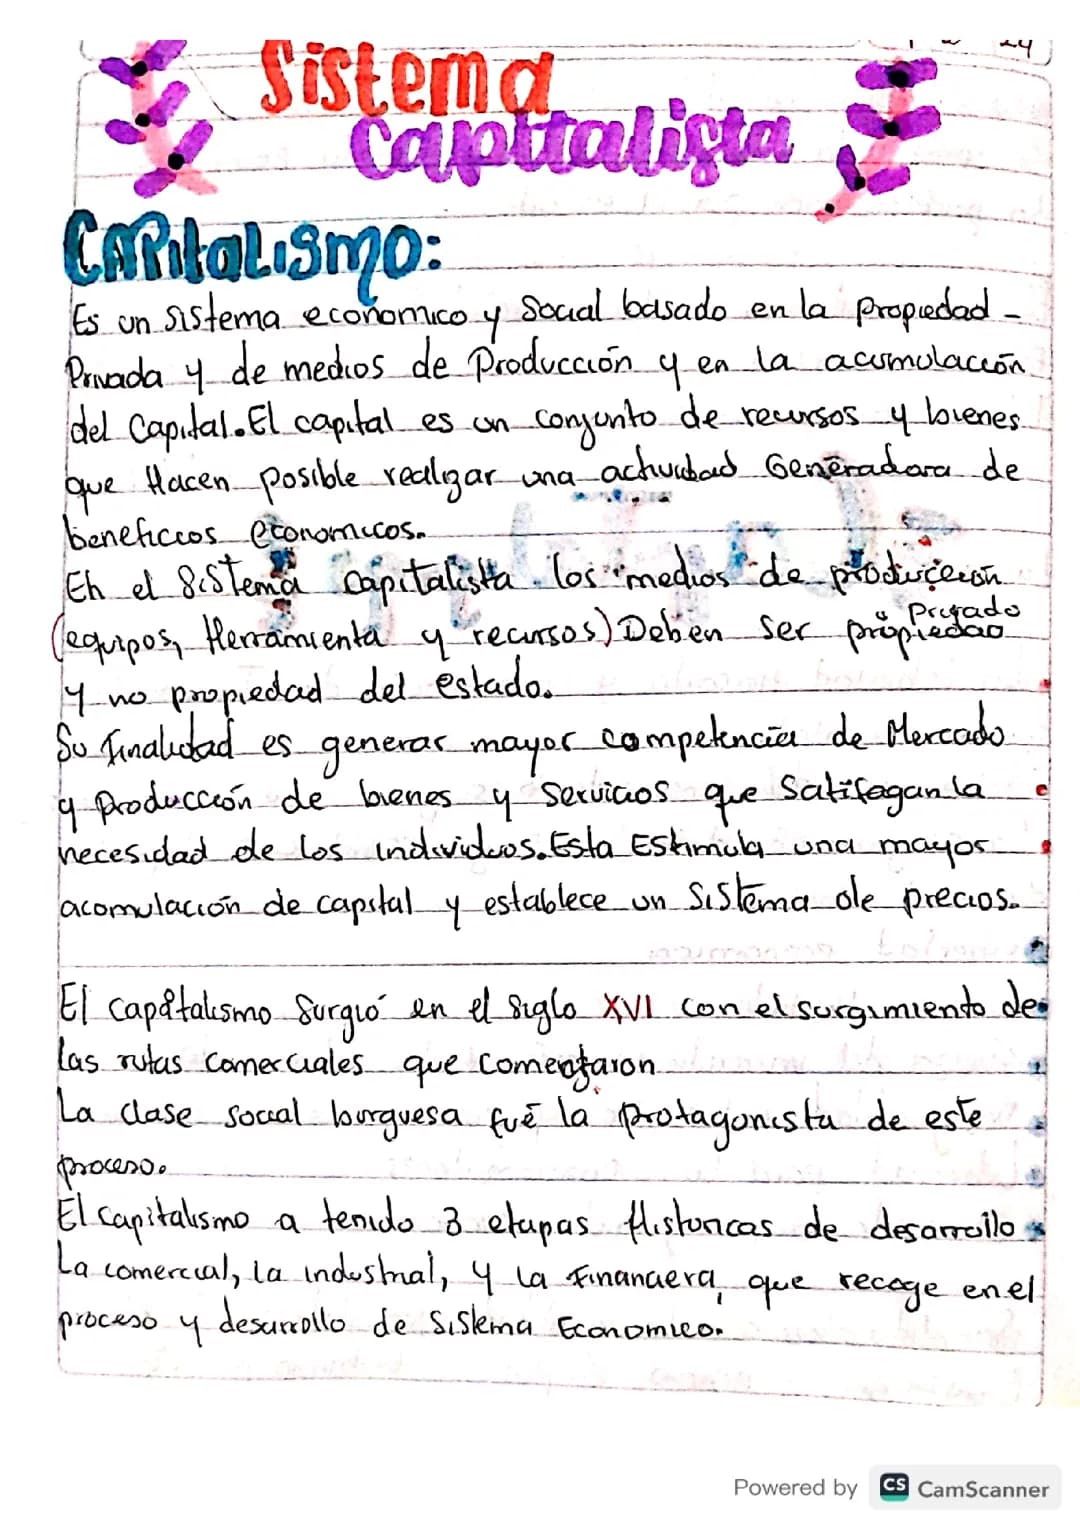 24
Sistema
Capitalista
CAPitaLismo:
Es un Sistema económico y Social basado en la propiedad -
Privada y de medios de Producción y en la acumulación
del Capital. El capital es un conjunto de recursos y bienes
que Hacen posible realizar una actividad Generadora de
beneficios económicos.
En el Sistema Capitalista los medios de producción
Privado
(equipos, Herramienta y recursos) Deben ser propiedad
y no propiedad del estado.
Su finalidad es generar mayor competencia de Mercado
y Producción de bienes y Servicios que Satifagan la
necesidad de los individuos. Esta Estimula una mayor
acomulación de capital y establece un Sistema de precios.
El capitalismo Surgió en el Siglo XVI con el surgimiento de
las rutas comerciales que comenzaron
La clase social burguesa fué la protagonista de este
proceso.
El capitalismo a tenido 3 etapas Historicas de desarrollo
La comercial, la industrial, y la Financiera, que recoge en el
proceso y desarrollo de Sistema Economico.
Powered by CS CamScanner